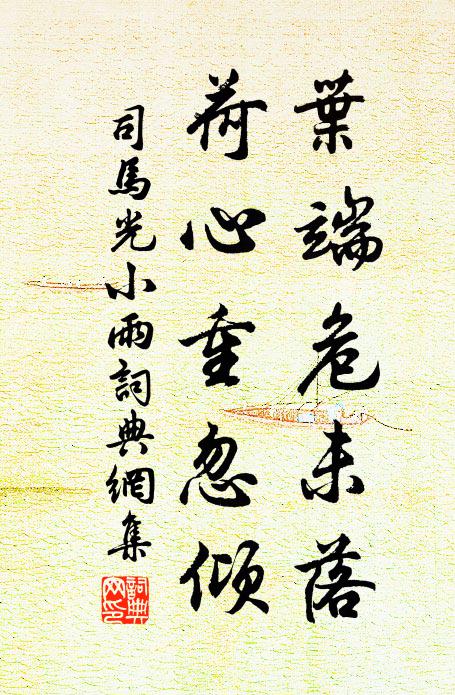 葉端危未落
荷心重忽傾
司馬光小雨詞典網集
詞典
网印